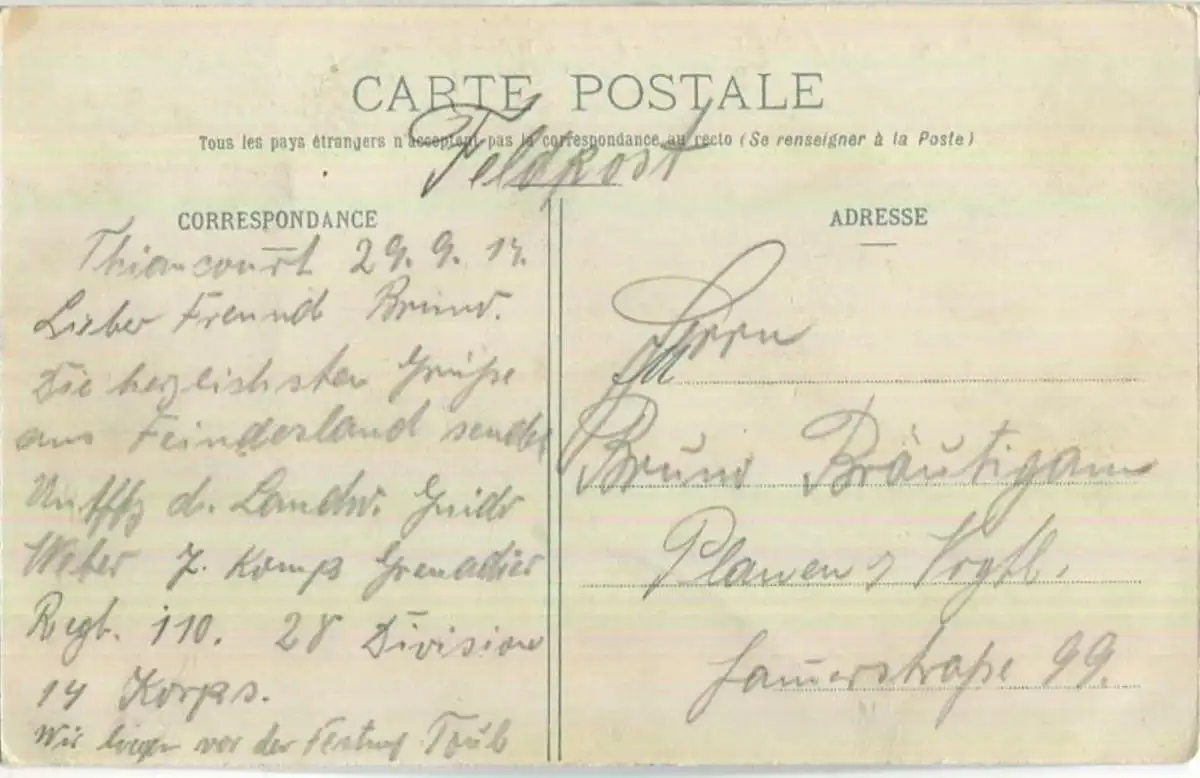 CARTE POSTALE
Tous les pays étrangers n'acceptent pas la correspondance au recto (Se renseigner à la Poste)
Feldpost
CORRESPONDANCE
Thiaucourt 29. 9. 14.
Lieber Freund Bruno.
Die herzlichsten Grüße
aus Feindesland sendet
Untffz d. Landw. Guido
Weber 7. Komp Grenadier
Regt. 110. 28 Division
14 Korps.
Wir liegen vor der Festung Toul
ADRESSE
Herrn
Bruno Bräutigam
Plauen i Vogtl.
99.